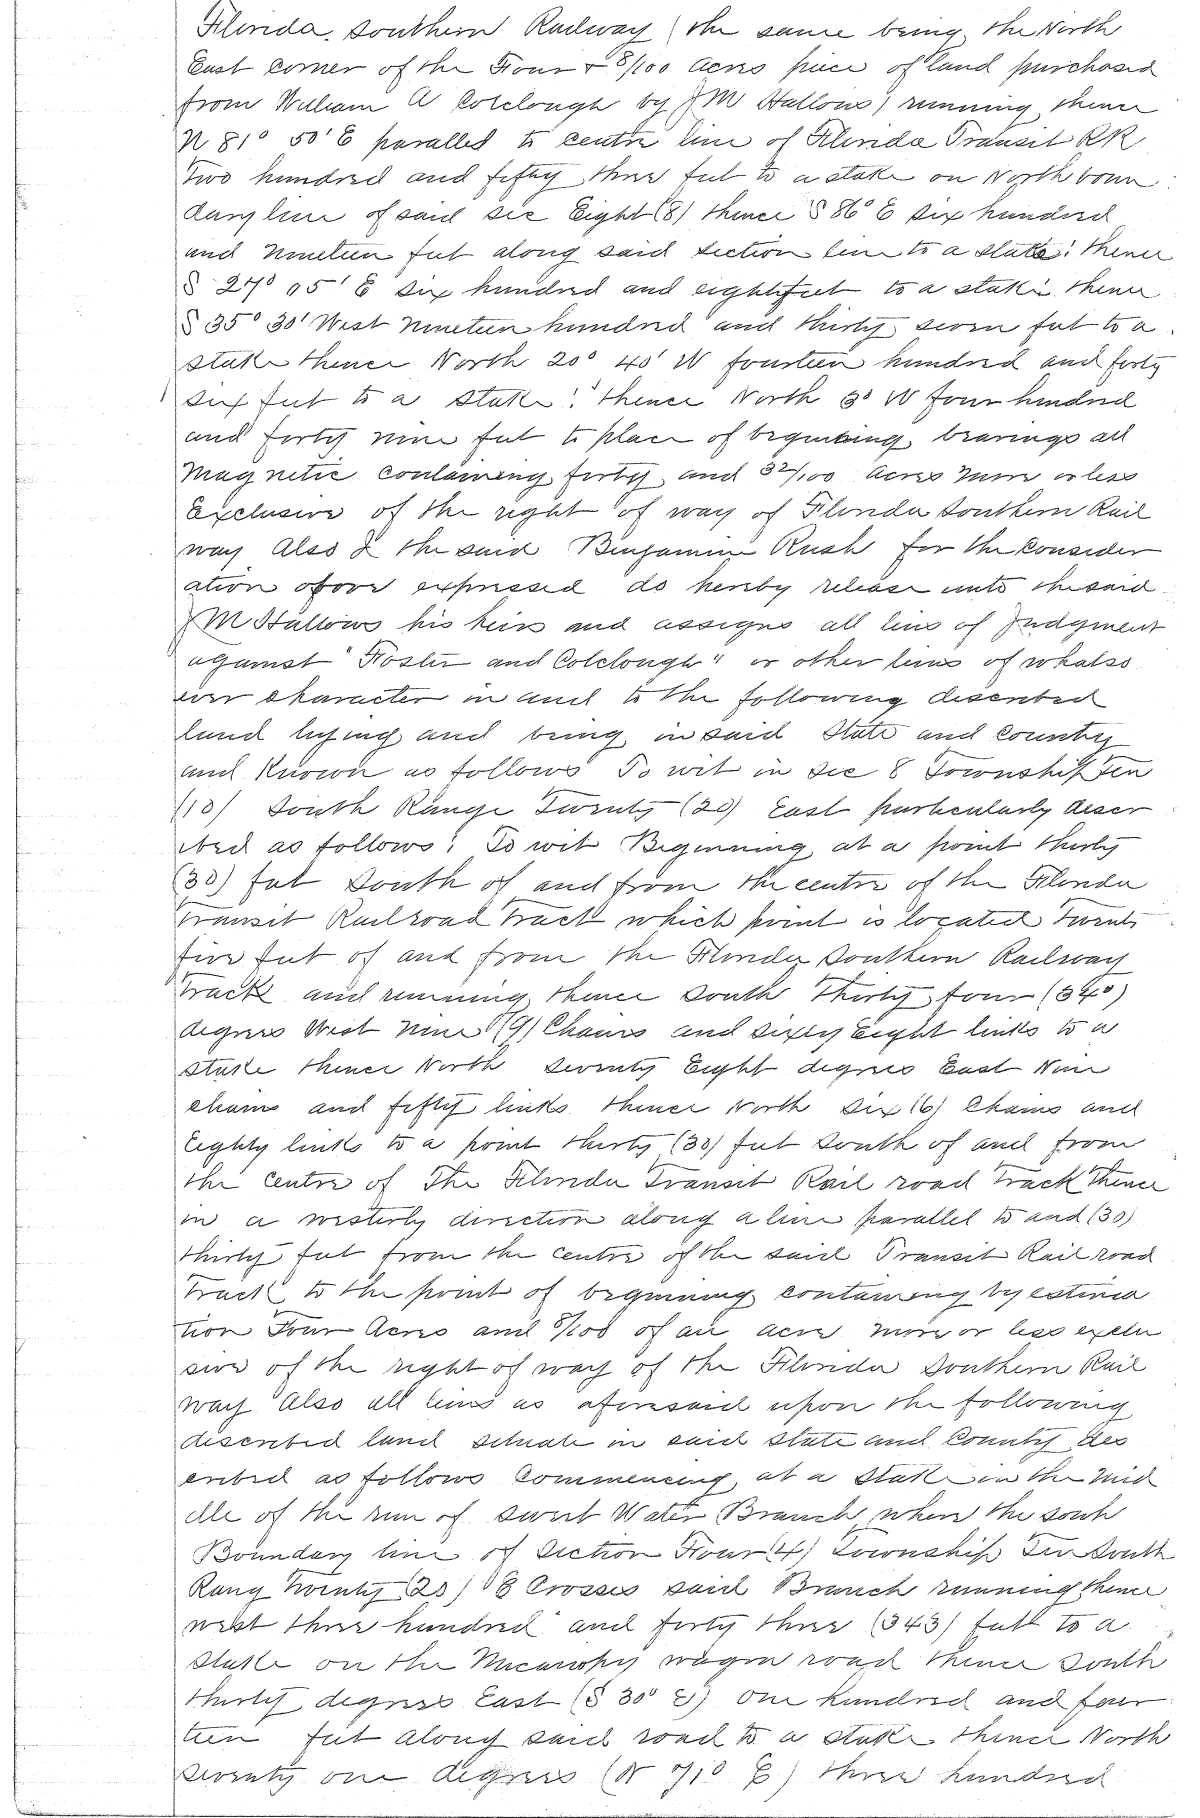 Florida, Southern Railway (the same being the North
East corner of the Four + 8/100 acres piece of land purchased
from William A Colclough by J M Hallows) running thence
N 81° 50' E paralled to centre line of Florida Transit RR
Two hundred and fifty three feet to a stake on North boun
dary line of said sec Eight (8) thence S 86° E six hundred
and nineteen feet along said section line to a stake: thence
S 27° 05' E six hundred and eighty feet to a stake thence
S 35° 30' West nineteen hundred and thirty seven feet to a
stake thence North 20° 40' W fourteen hundred and forty
six feet to a stake: thence North 3° W four hundred
and forty nine feet to place of beginning, bearings all
Magnetic containing forty and 32/100 acres more or less
Exclusive of the right of way of Florida Southern Rail
way Also I the said Benjamin Rush for the consider
ation above expressed do hereby release unto the said
J M Hallows his heirs and assigns all liens of Judgment
against "Foster and Colclough" or other liens of whatso
ever character in and to the following described
land lying and being in said State and County
and Known as follows To wit in Sec 8 Township Ten
(10) South Range Twenty (20) East particularly descr
ibed as follows: To wit Beginning at a point thirty
(30) feet South of and from the centre of the Florida
Transit Railroad Tract which point is located Twenty
five feet of and from the Florida Southern Railway
Track and running thence South Thirty four (34°)
degrees West Nine (9) Chains and sixty Eight links to a
stake thence North seventy Eight degrees East Nine
chains and fifty links thence North six (6) Chains and
Eighty links to a point thirty (30) feet South of and from
the centre of The Florida Transit Rail road Track Thence
in a westerly direction along a line parallel to and (30)
thirty feet from the centre of the said Transit Rail road
Track to the point of beginning containing by estima
tion Four Acres and 8/100 of an acre more or less exclu
sive of the right of way of the Florida Southern Rail
way Also all liens as aforesaid upon the following
described land situate in said State and County des
cribed as follows Commencing at a stake in the mid
dle of the run of Sweet Water Branch where the south
Boundary line of Section Four (4) Township Ten South
Rang Twenty (20) E Crosses said Branch running thence
west three hundred and forty three (343) feet to a
stake on the Micanopy wagon road thence South
thirty degrees East (S 30° E) One hundred and four
teen feet along said road to a stake thence North
seventy one degrees (N 71° E) three hundred